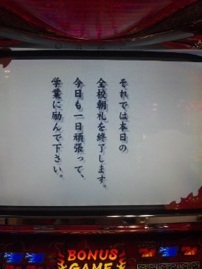 それでは本日の
全校朝礼を終了します。
今日も一日頑張って、
学業に励んで下さい。
BONUS
GAME